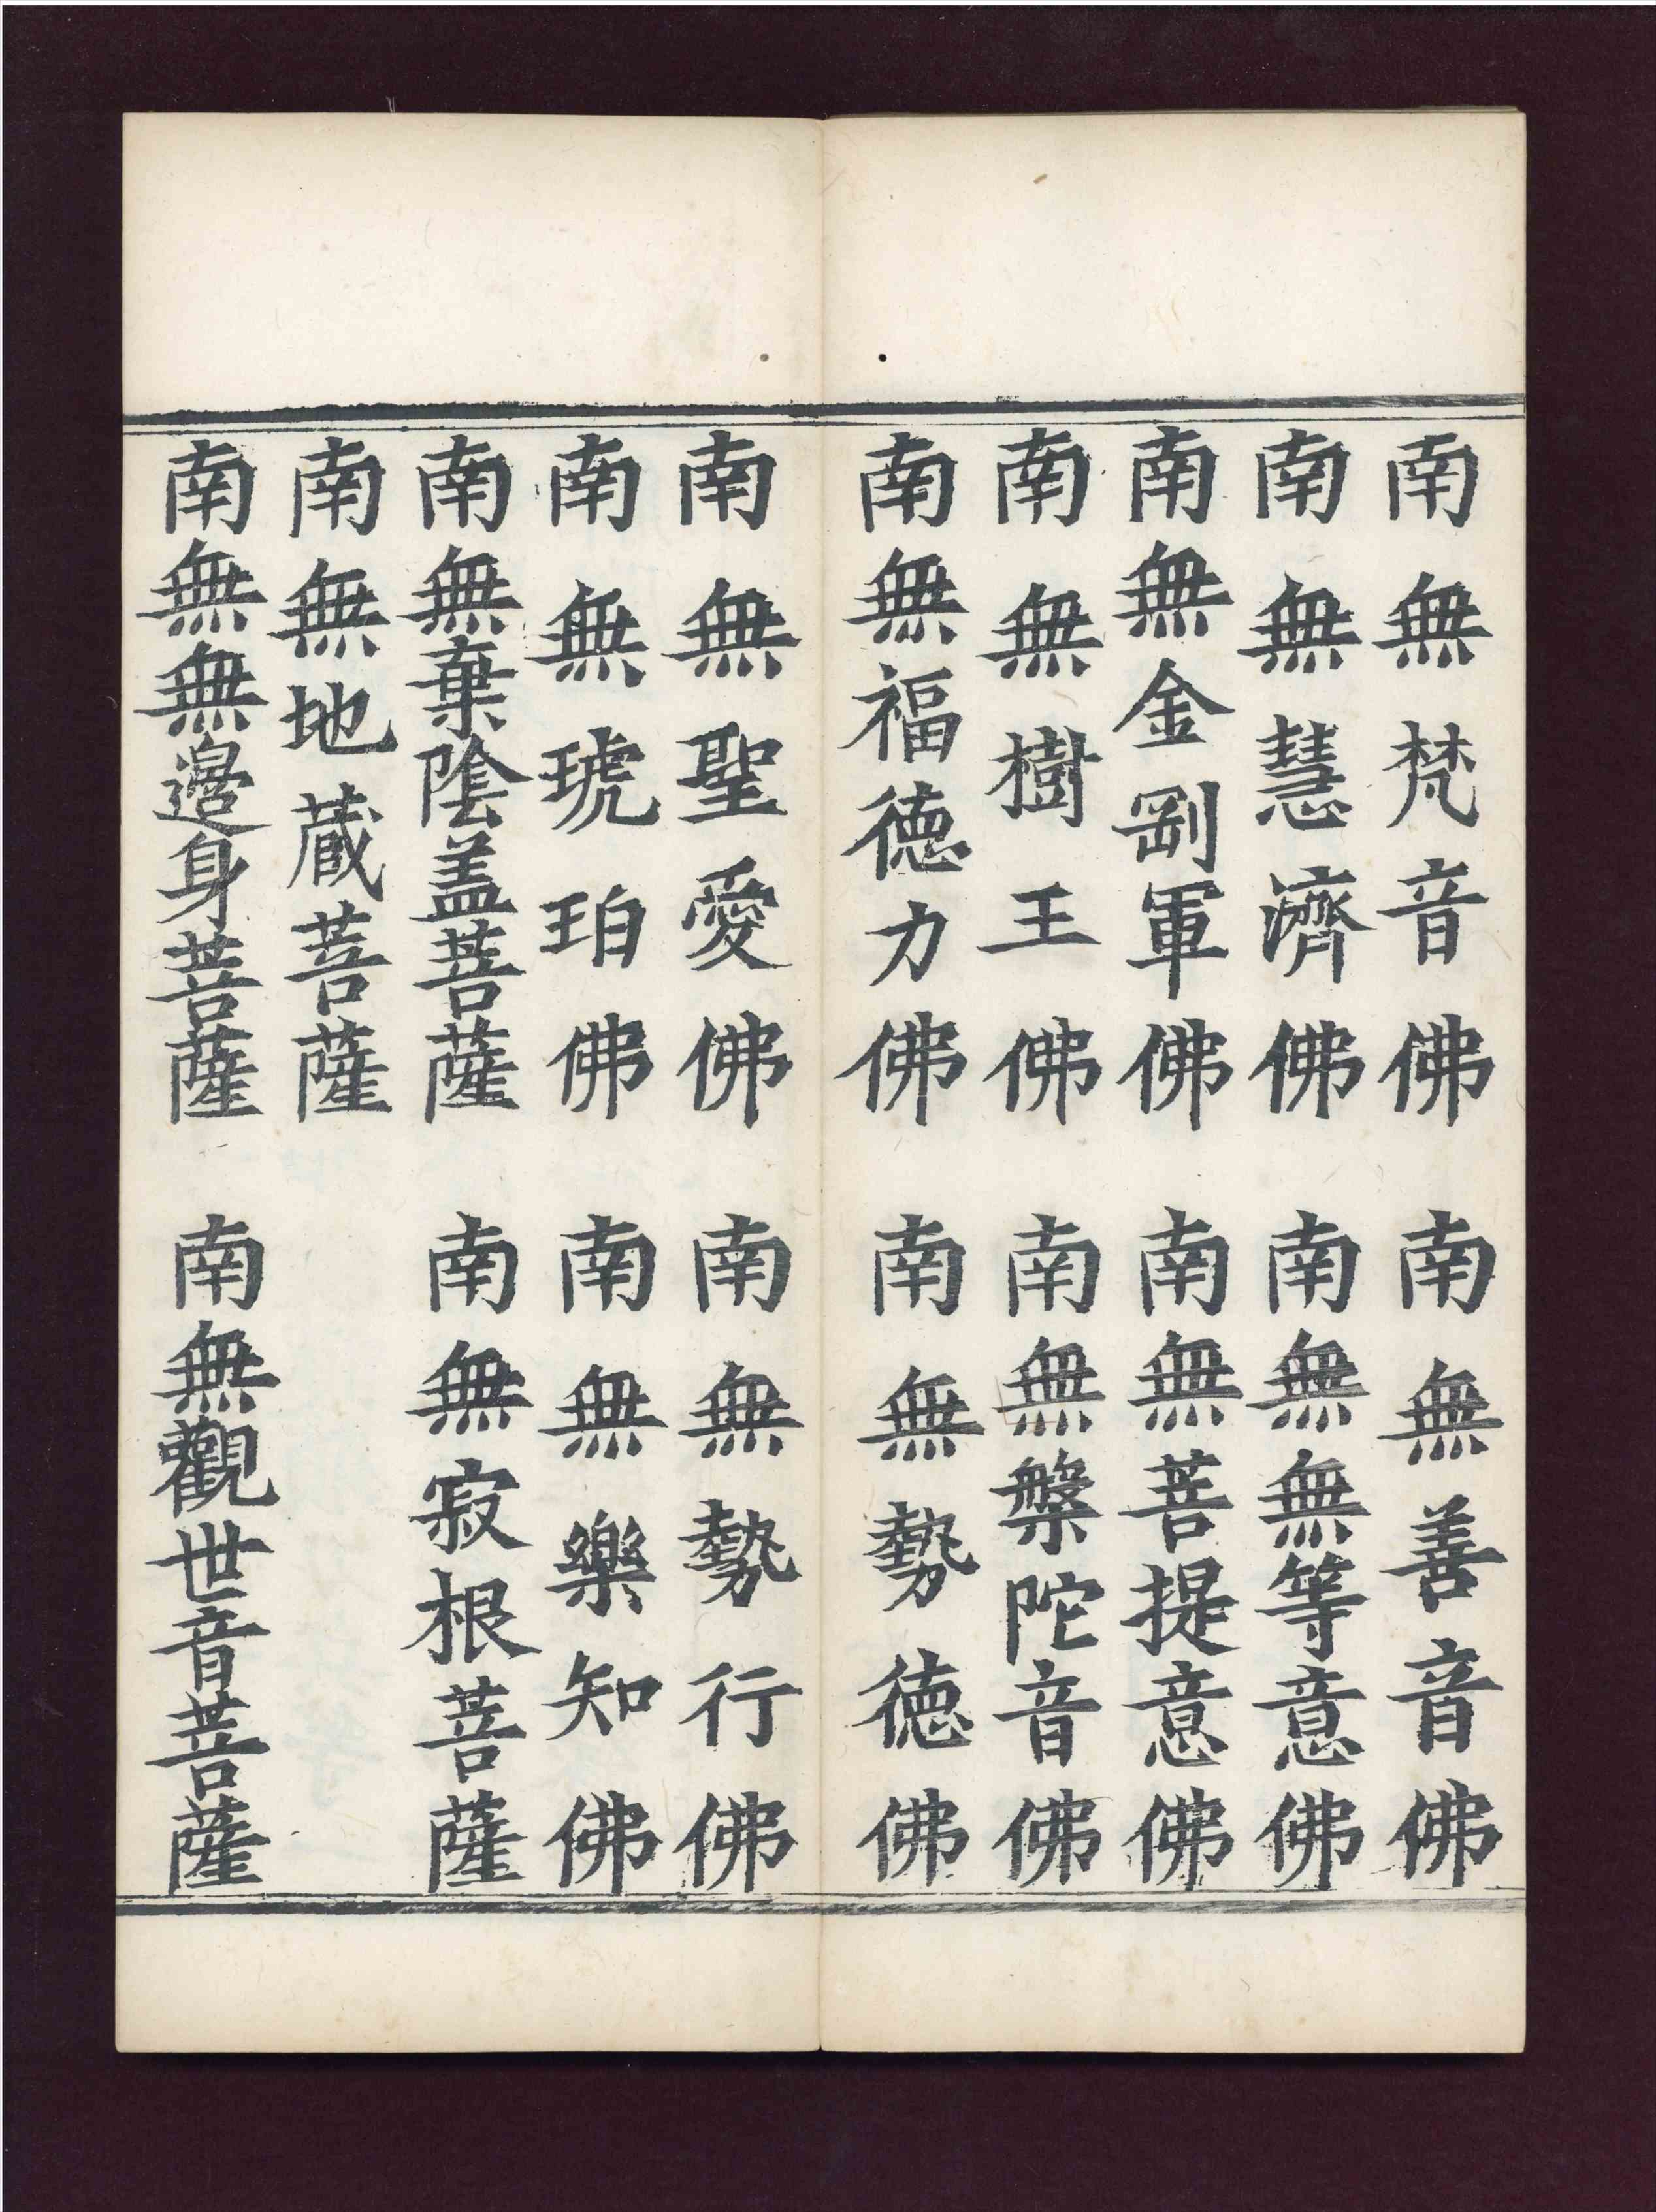 南無梵音佛　南無善音佛
南無慧濟佛　南無無等意佛
南無金剛軍佛　南無菩提意佛
南無樹王佛　南無槃陀音佛
南無福德力佛　南無勢德佛
南無聖愛佛　南無勢行佛
南無琥珀佛　南無樂知佛
南無棄陰盖菩薩　南無寂根菩薩
南無地蔵菩薩
南無無邊身菩薩　南無觀世音菩薩